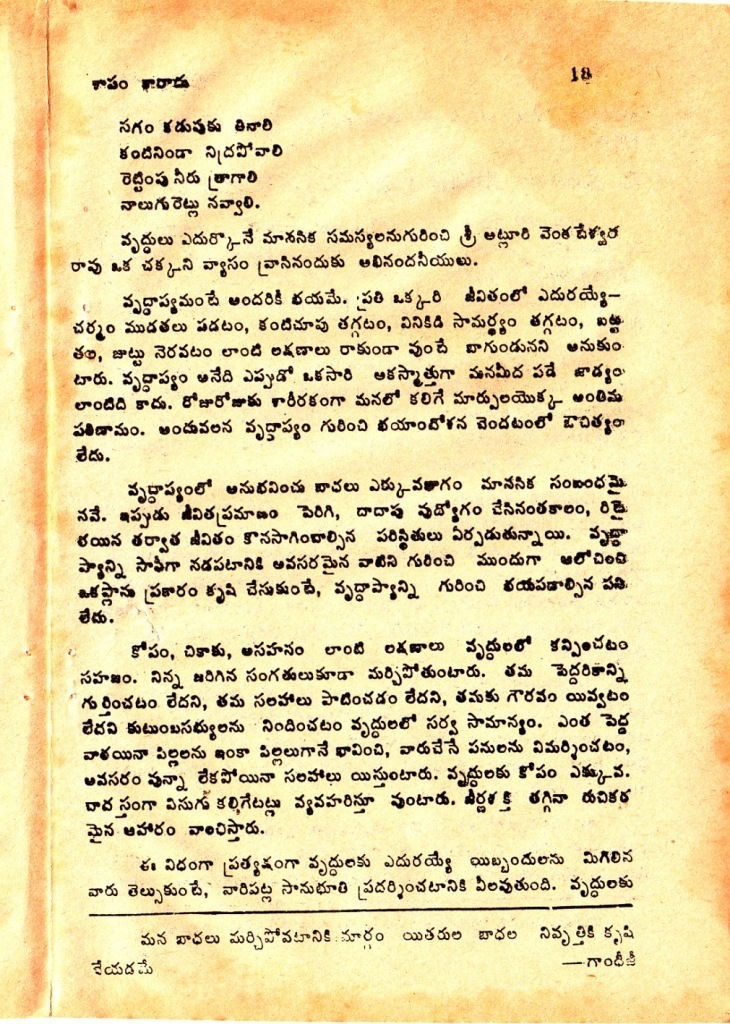 శాపం కారాదు 18
సగం కడుపుకు తినాలి
కంటినిండా నిద్రపోవాలి
రెట్టింపు నీరు త్రాగాలి
నాలుగురెట్లు నవ్వాలి.
వృద్ధులు ఎదుర్కొనే మానసిక సమస్యలనుగురించి శ్రీ అట్లూరి వెంకటేశ్వర
రావు ఒక చక్కని వ్యాసం వ్రాసినందుకు అభినందనీయులు.
వృద్ధాప్యమంటే అందరికీ భయమే. ప్రతి ఒక్కరి జీవితంలో ఎదురయ్యే–
చర్మం ముడతలు పడటం, కంటిచూపు తగ్గటం, వినికిడి సామర్థ్యం తగ్గటం, బట్ట
తల, జుట్టు నెరవటం లాంటి లక్షణాలు రాకుండా వుంటే బాగుండునని అనుకుం
టారు. వృద్ధాప్యం అనేది ఎప్పుడో ఒకసారి ఆకస్మాత్తుగా మనమీద పడే జాడ్యం
లాంటిది కాదు. రోజురోజుకు శారీరకంగా మనలో కలిగే మార్పులయొక్క అంతిమ
పరిణామం. అందువలన వృద్ధాప్యం గురించి భయాందోళన చెందటంలో ఔచిత్యం
లేదు.
వృద్ధాప్యంలో అనుభవించు బాధలు ఎక్కువభాగం మానసిక సంబంధమై
నవే. ఇప్పుడు జీవితప్రమాణం పెరిగి, దాదాపు వుద్యోగం చేసినంతకాలం, రిటై
రయిన తర్వాత జీవితం కొనసాగించాల్సిన పరిస్థితులు ఏర్పడుతున్నాయి. వృద్ధా
ప్యాన్ని సాఫీగా నడపటానికి అవసరమైన వాటిని గురించి ముందుగా ఆలోచించి
ఒకప్లాను ప్రకారం కృషి చేసుకుంటే, వృద్ధాప్యాన్ని గురించి భయపడాల్సిన పని
లేదు.
కోపం, చికాకు, అసహనం లాంటి లక్షణాలు వృద్ధులలో కన్పించటం
సహజం. నిన్న జరిగిన సంగతులుకూడా మర్చిపోతుంటారు. తమ పెద్దరికాన్ని
గుర్తించటం లేదని, తమ సలహాలు పాటించడం లేదని, తమకు గౌరవం యివ్వటం
లేదని కుటుంబసభ్యులను నిందించటం వృద్ధులలో సర్వ సామాన్యం. ఎంత పెద్ద
వాళయినా పిల్లలను ఇంకా పిల్లలుగానే భావించి, వారుచేసే పనులను విమర్శించటం,
అవసరం వున్నా లేకపోయినా సలహాలు యిస్తుంటారు. వృద్ధులకు కోపం ఎక్కువ.
చాదస్తంగా విసుగు కల్గిగేటట్లు వ్యవహరిస్తూ వుంటారు. జీర్ణశక్తి తగ్గినా రుచికర
మైన ఆహారం వాంఛిస్తారు.
ఈ విధంగా ప్రత్యక్షంగా వృద్ధులకు ఎదురయ్యే యిబ్బందులను మిగిలిన
వారు తెల్సుకుంటే, వారిపట్ల సానుభూతి ప్రదర్శించటానికి వీలవుతుంది. వృద్ధులకు
మన బాధలు మర్చిపోవటానికి మార్గం యితరుల బాధల నివృత్తికి కృషి
చేయడమే —గాంధీజీ